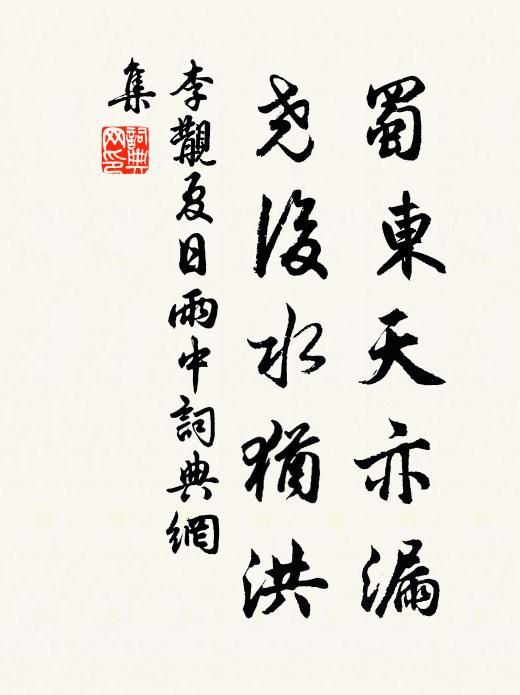 蜀東天亦漏
堯後水猶洪
李覯夏日雨中詞典網
集
詞典
网印